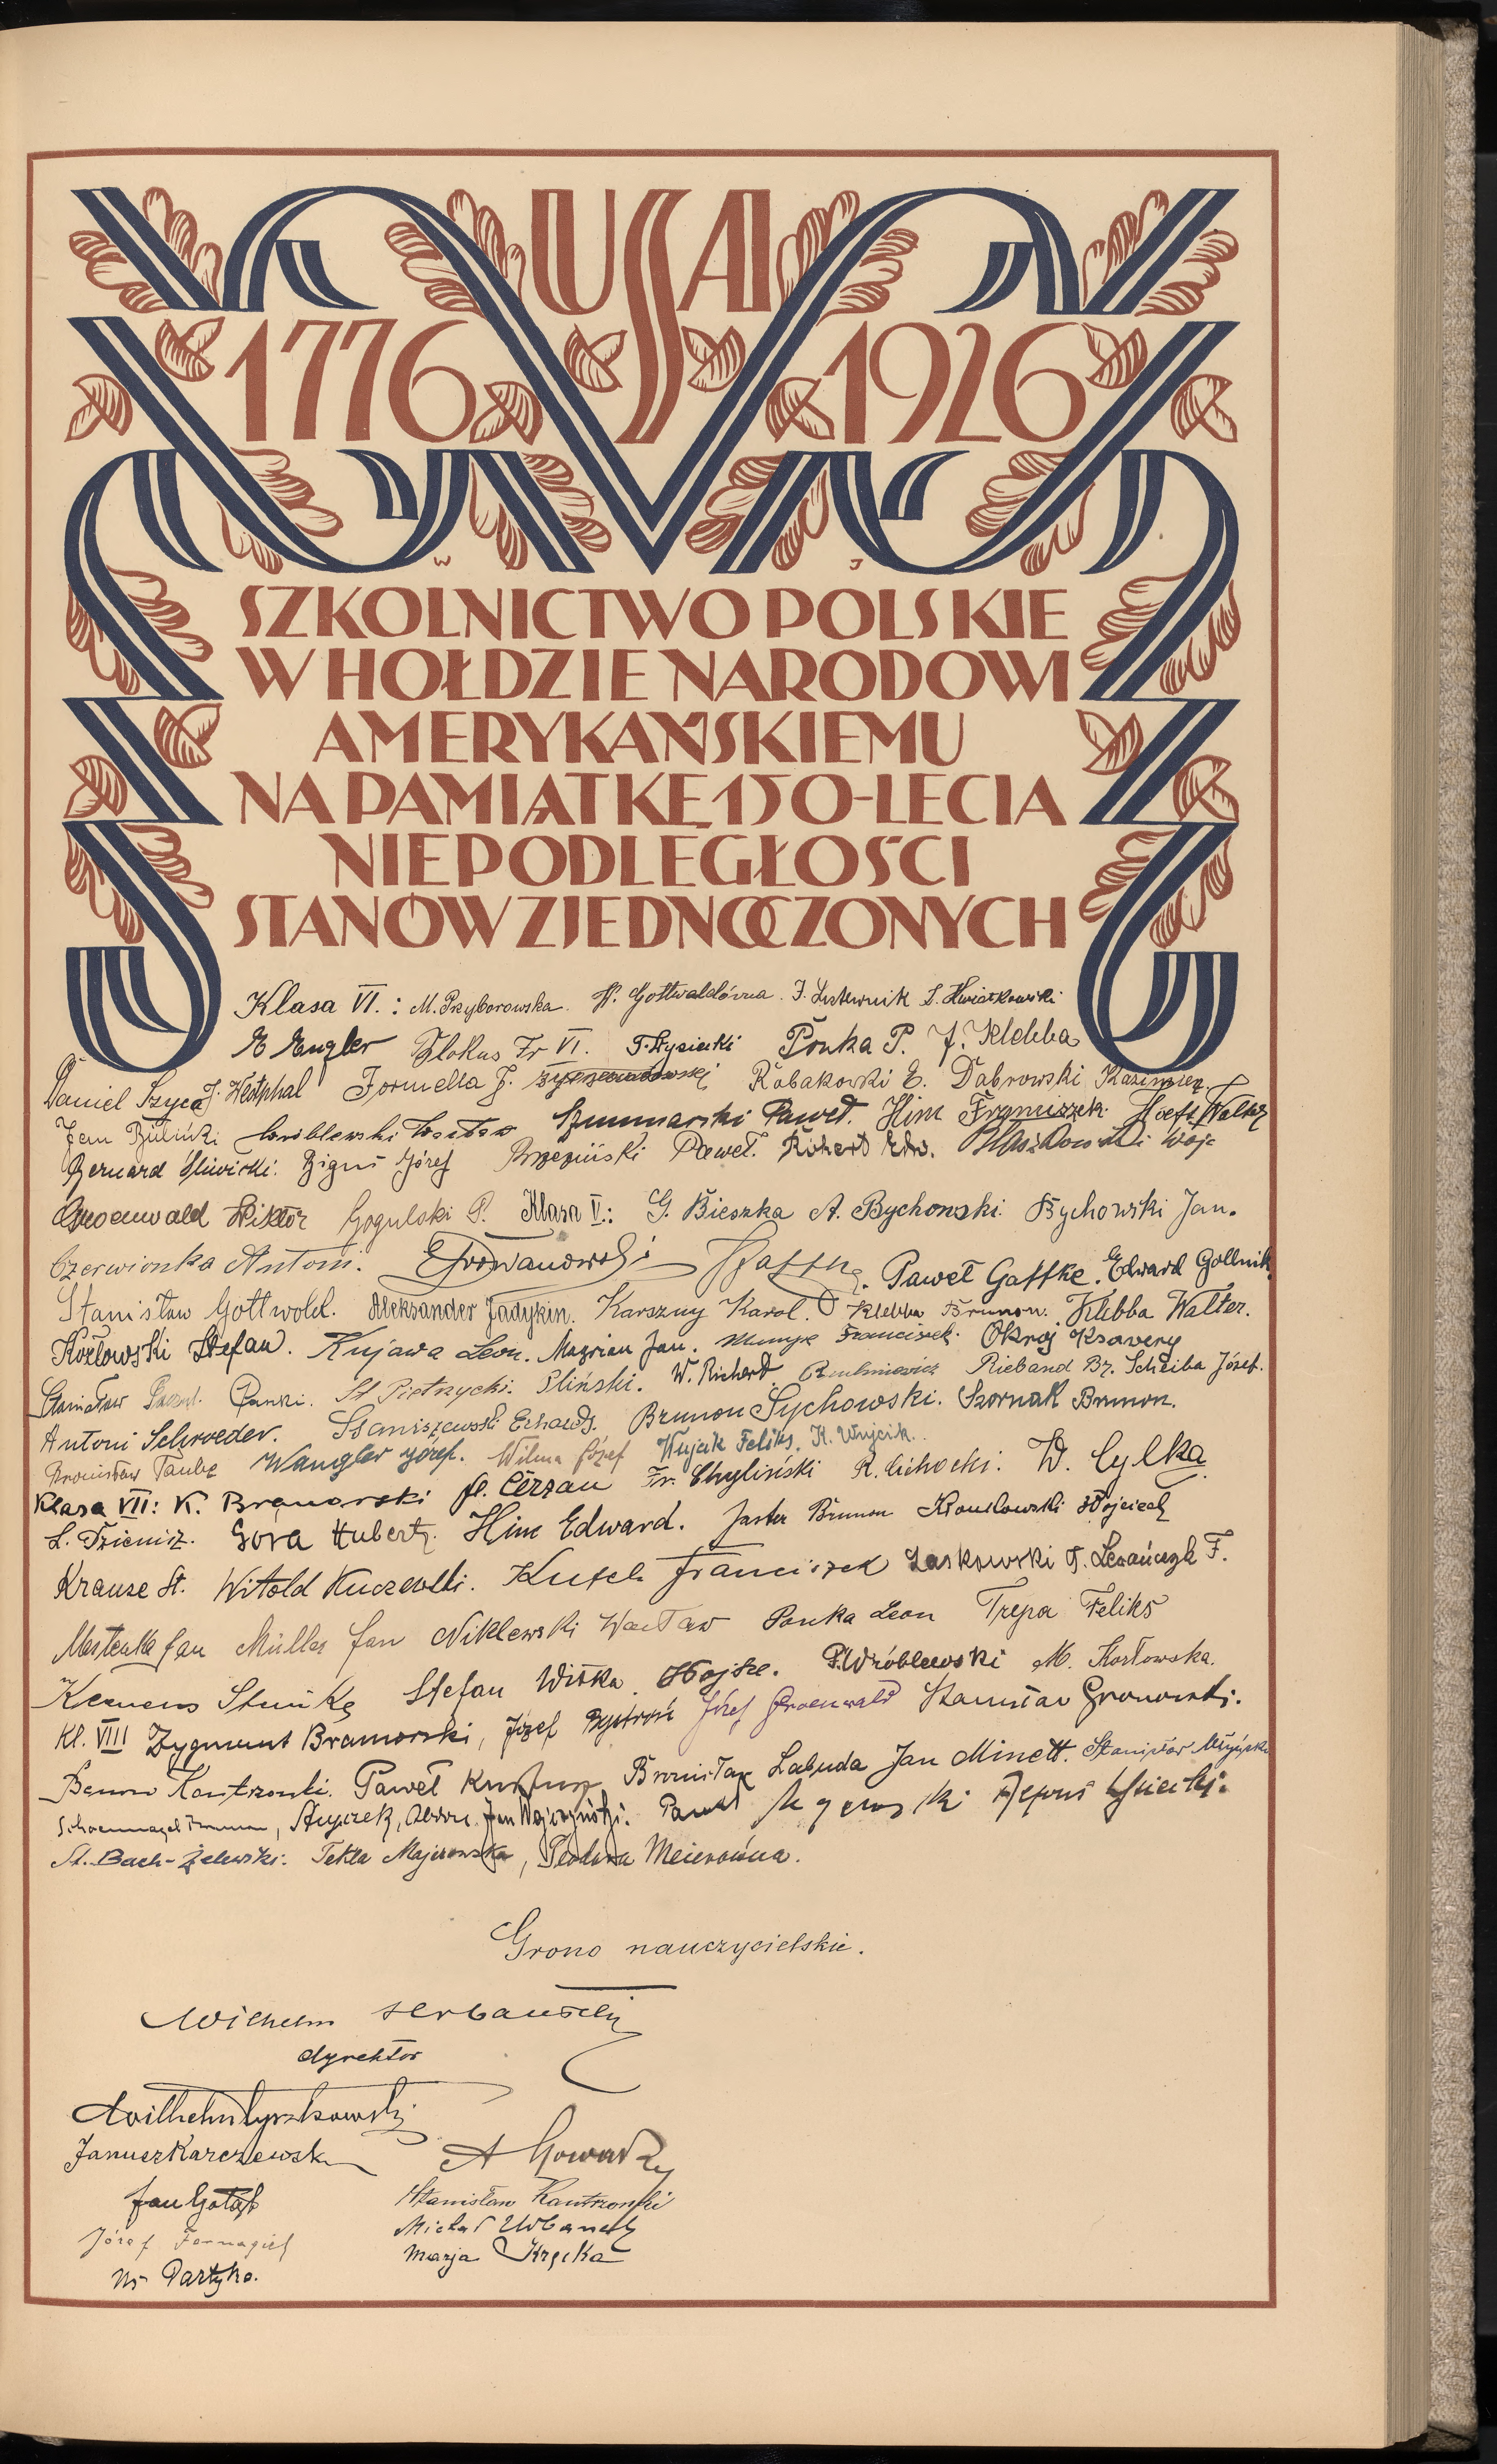 USA
1776 1926
SZKOLNICTWO POLSKIE
W HOŁDZIE NARODOWI
AMERYKAŃSKIEMU
NA PAMIĄTKĘ 150-LECIA
NIEPODLEGŁOŚCI
STANÓW ZJEDNOCZONYCH
Klasa VI.: M. Przyborowska. W. Gottwaldówna. J. Lustewnik S. Kwiatkowski
E Engler Flokus Fr VI. Ponka P. J. Klebba
Daniel Szyca J. Westphal Formella J. Robakowski E. Dąbrowski Kazimierz.
Jan Bieliński Wróblewski Szummarski Paweł. Him Franciszek. Hoeft Walter
Bernard Śliwicki. Bigus Józef Brzeziński Paweł. Richert Edw. Błaszkowski Wojc
Groenwald Wiktor Gogulski P. Klasa V.: G. Bieszka A. Bychowski Bychowski Jan.
Czerwionka Antoni. Paweł Gaffke. Edward Gollnik
Stanisław Gottwold. Aleksander Jadykin. Karszny Karol. Klebba Brunon. Klebba Walter.
Kozłowski Stefan. Kujawa Leon. Mazrian Jan. Munge Franciszek. Okroj Ksawery
Stanisław Panki. St Pietrzycki. Pliński. W. Richert. Rieband Br. Scheiba Józef.
Antoni Schroeder. Staniszewski Erhard. Brunon Sychowski. Szornak Brunon.
Bronisław Taube Wangler Józef. Wilma Józef Wujcik Feliks. K. Wujcik.
Klasa VII: K. Branorski A. Cerzan Fr. Chyliński R. Cichocki. W. Cylka
L. Dzienisz. Góra Hubert. Him Edward. Jaster Brunon Kroukowski Wojciech
Krauze St. Witold Kuczewski. Kusch Franciszek Laskowski T. Lewańczyk F.
Mastenka Jan Müller Jan Niklewski Wacław Ponka Leon Trepa Feliks
Klemens Steinke Stefan Wiśka. P. Wróblewski M. Kozłowska.
Kl. VIII Zygmunt Bramorski, Józef Bystroń Józef Groenwald Stanisław Gronowski.
Benon Kantrzonki. Paweł Bronisław Labuda Jan Minett. Stanisław Młyński
Schoennagel Brunon, Stujczek, Jan Wojczyński. Paweł
A. Bach-Żelewski. Tekla Majewska, Teodora Meierówna.
Grono nauczycielskie.
Wilhelm Urbanicki
dyrektor
Wilhelm Cyszkowski
Janusz Karczewski A
Jan Gołąb Stanisław Kantrzonki
Józef Fornagiel Michał Urbanek
W. Partyka. Marja Krzęka